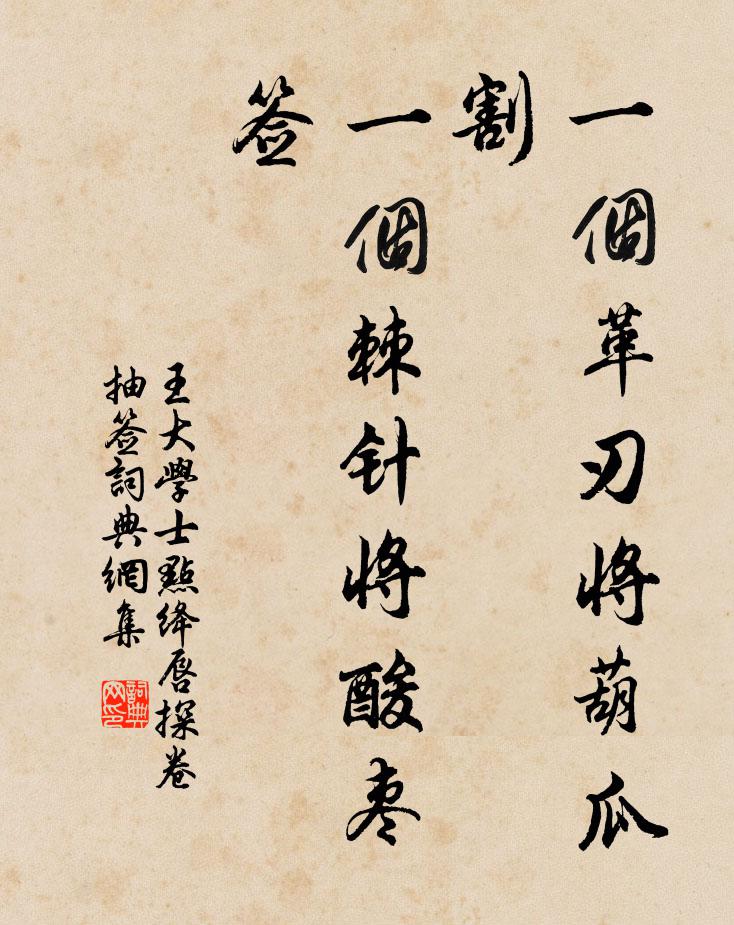 一個革刃將葫瓜
割
一個棘针將酸枣
签
王大學士點绛唇探卷
抽签詞典網集
詞典网印